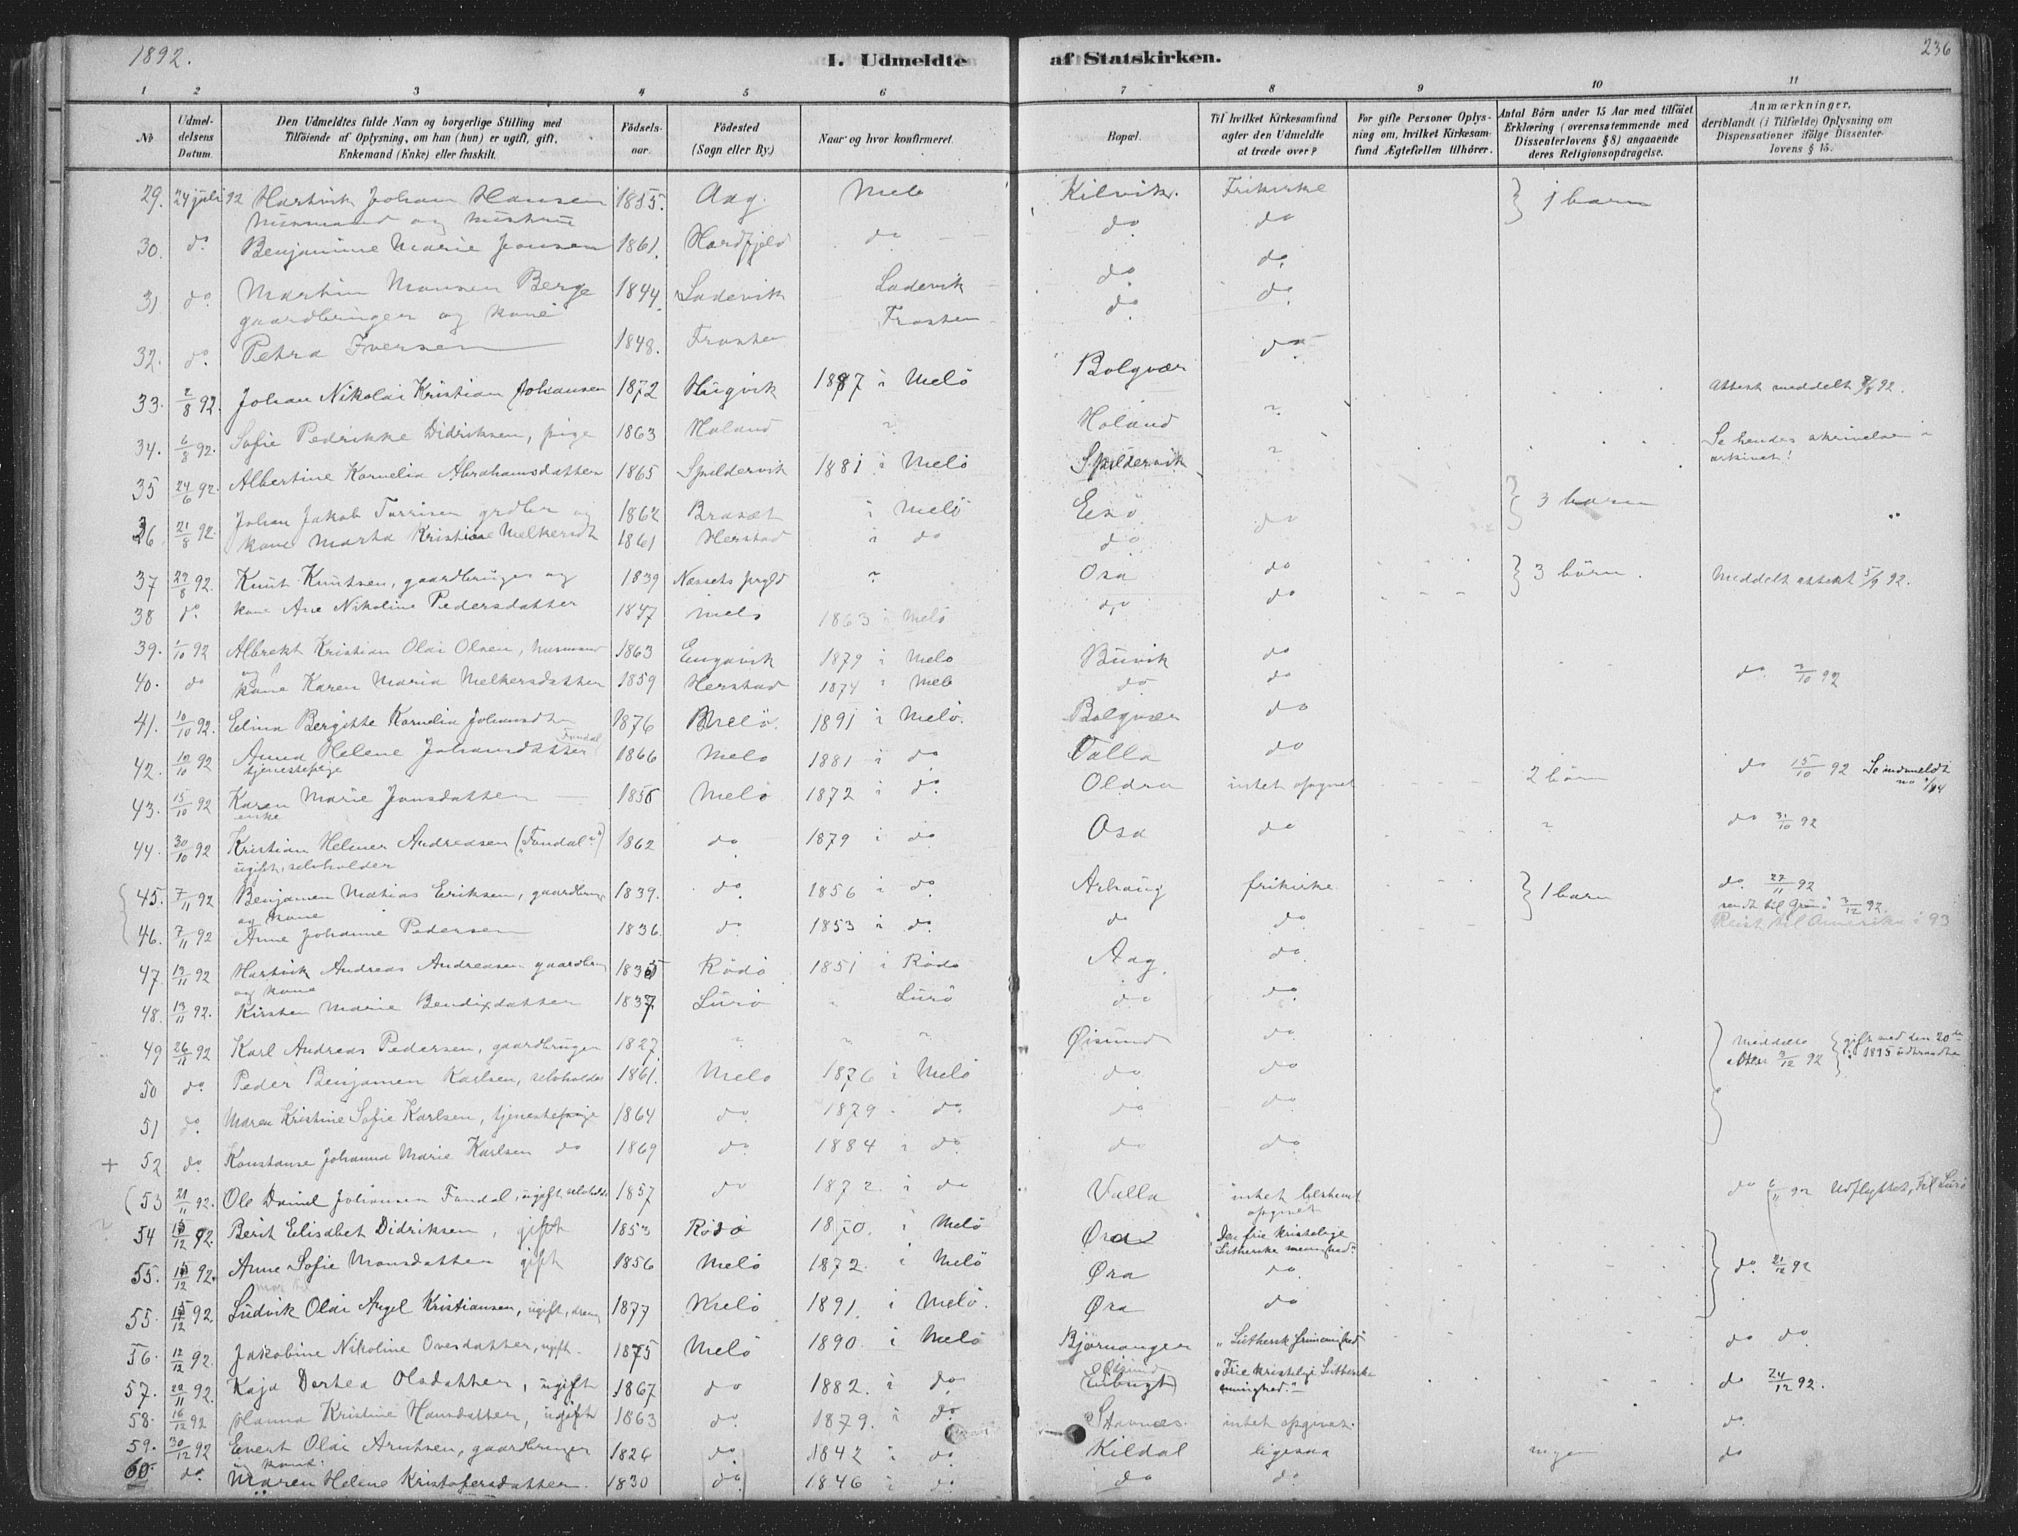 1892.
I. Udmeldte af Statskirken.
236
1 2 3 4 5 6 7 8 9 10 11
No
Udmeldelsens Datum.
Den Udmeldtes fulde Navn og borgerlige Stilling med Tilføiende af Oplysning, om han (hun) er ugift, gift, Enkemand (Enke) eller fraskilt.
Fødselsaar.
Fødested (Sogn eller By.)
Naar og hvor konfirmeret.
Bopæl.
Til hvilket Kirkesamfund agter den Udmeldte at træde over?
For gifte Personer Oplysning om, hvilket Kirkesamfund Ægtefællen tilhører.
Antal Børn under 15 Aar med tilføiet Erklæring (overensstemmende med Dissenterlovens § 8) angaaende deres Religionsopdragelse.
Anmærkninger, deriblandt (i Tilfælde) Oplysning om Dispensationer ifølge Dissenterlovens § 15.
29. 24 juli 92 Hartvik Johan Hansen 1855. Aag. Melö Kilvik. Frikirke } 1 barn
husmand og hustru do do
30. do. Benjamine Marie Jonsen 1861. Hardfjeld do
31 do. Martin Monsen Berge 1844. Ladevik Ladevik do. do.
gaardbruger og kone Frosten do. do.
32. do. Petra Iversen 1848. Frosten do
33. 2/8 92. Johan Nikolai Kristian Johansen 1872 Hugvik 1887 i Melö Bolgvær Attest meddelt 9/8 92.
34. 6/8 92. Sofie Pedrikke Didriksen, pige 1863 Holand " Holand " Se hendes skrivelse i arkivet!
35 24/6 92. Albertine Kornelia Abrahamsdatter 1865 Speldervik 1881 i Melö Speldervik "
36 21/8 92. Johan Jakob Torrisen grdbr og 1862 Brasæt i Melö Esö do } 3 barn
kone Marta Kristine Melkersdt 1861 Herstad i do do
37 29/8 92. Knut Knutsen, gaardbruger og 1839 Næssets prgld " Osa do } 3 börn. Meddelt attest 5/9 92.
38 do. kone Ane Nikoline Pedersdatter 1847 Melö 1863 i Melö do do
39. 1/10 92 Albrekt Kristian Olai Olsen, husmand 1863 Engavik 1879 i Melö Buvik do
40. do og kone Karen Maria Melkersdatter 1859 Herstad 1874 i Melö do do do. 2/10 92
41. 10/10 92. Edina Bergitte Kornelia Johansdtr 1876 Melö. 1891 i Melö. Bolgvær do
42. 12/10 92 Anna Helene Johansdatter Fondal 1866 Melö 1881 i do Valla do
tjenestepige
43. 15/10 92 Karen Marie Jonsdatter 1856 Melö 1872 i do. Oldra intet opgivet 2 börn do 15/10 92 Se indmeldt
enke
44. 30/10 92 Kristian Helmer Andreasen ("Fondal") 1862 do. 1879 i do. Osa do " do 31/10 92
ugift, selvholder
45. 7/11 92 Benjamen Matias Eriksen, gaardbrug 1839. do. 1856 i do. Arhaug frikirke. } 1 barn do. 27/11 92
og kone sendt til Grunö 3/12 92.
46. 7/11 92 Anne Johanne Pedersen 1836. do. 1853 i do. do do. Reist til Amerika i 93
47. 13/11 92 Hartvik Andreas Andreasen gaardbrug 1835 Rödö 1851 i Rödö Aag. do.
og kone
48. 13/11 92. Kirsten Marie Bendixdatter 1837 Lurö " Lurö do do.
49 26/11 92 Karl Andreas Pedersen, gaardbruger 1827. " " " Øisund do. meddelt attest 3/12 92 { gift med den 20de i 1895 udtraadte
50 do. Peder Benjamen Karlsen, selvholder 1861. Melö 1876 i Melö do do.
51 do. Maren Kristine Sofie Karlsen, tjenestepige 1864 do. 1879 . do. do do.
+ 52 do. Konstanse Johanna Marie Karlsen do 1869 do. 1884 i do. do do.
(53 21/11 92. Ole Daniel Johansen Fondal, ugift selvholde 1857 do 1872. i do Valla intet bestemt opgivet do 6/11 92 Udflyttet til Lurö
54 15/12 92. Berit Elisabet Didriksen, gift 1853 Rödö 1870. i Melö Øra Den frie kristelige Lutherske menighed.
55. 15/12 92. Anne Sofie Monsdatter gift 1856 Melö 1872. i Melö Øra do. do. 21/12 92
55. 15/12 92 Ludvik Olai Angel Kristiansen, ugift, dreng 1877 Melö 1891. i Melö. Øra do
56. 12/12 92. Jakobine Nikoline Ovesdatter, ugift. 1875 Melö 1890. i Melö Bjørnanger "Luthersk frimenighed" do do.
57. 22/11 92. Kaja Dortea Olsdatter, ugift 1867 do 1882. i do. Øisund (Enbugt) "Frie kristelige Lutherske menighed." do 24/12 92.
58. 16/12 92 Hanna Kristine Hansdatter, ugift 1863 do. 1879. i do. Stavnæs. intet opgivet. do.
59. 30/12 92 Evert Olai Arntsen, gaardbruger 1826 do. 1842 i do. Kildal ligesaa ingen do
og kone.
60. do. Maren Helene Kristofersdatter. 1830 do. 1846 i do. do do